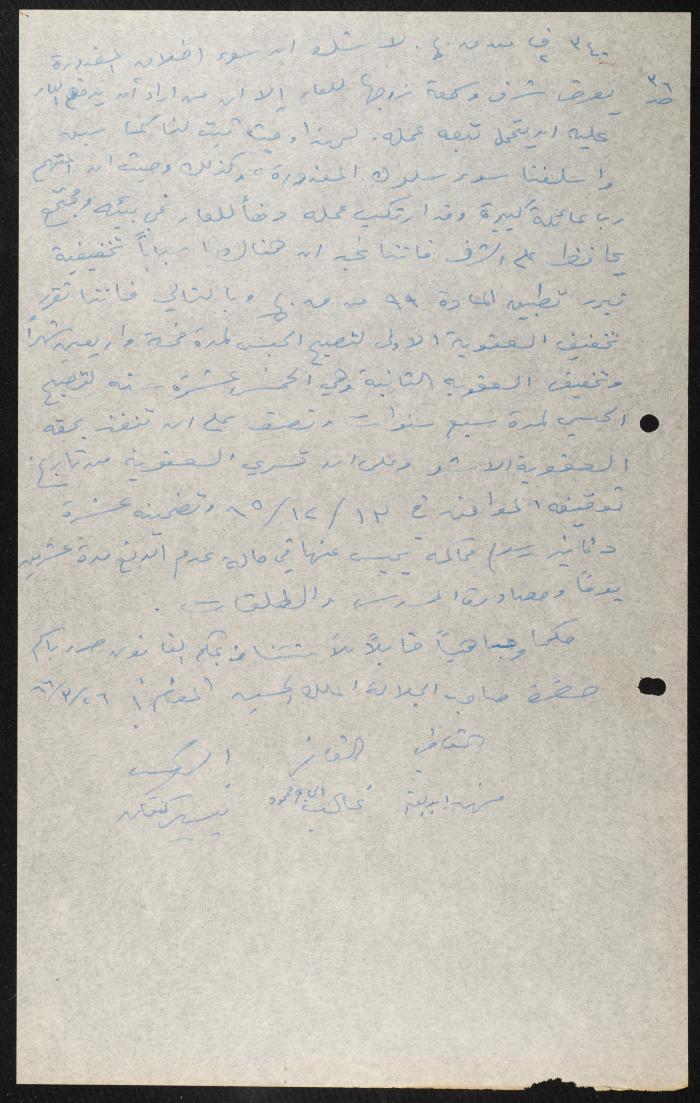 ص ٣٦
٣٤٠ من ق. لا شك ان سوء اخلاق المغدورة
يعرض شرف وسمعة زوجها للعار إلا ان من اراد أن يدفع العار
عليه ان يتحمل تبعه عمله. لهذا وحيث ثبت لنا كما سبق
واسلفنا سوء سلوك المغدورة، وكذلك وحيث ان المتهم
رب عائلة كبيرة وقد ارتكب عمله دفعاً للعار في بيئه ومجتمع
يحافظ على الشرف فاننا نجد ان هناك اسباباً تخفيفية
تبرر تطبيق المادة ٩٩ من ق وبالتالي فاننا نقرر
تخفيف العقوبة الاولى لتصبح الحبس لمدة خمسة واربعين شهراً
وتخفيف العقوبه الثانية وهي الخمس عشرة سنه لتصبح
الحبس لمدة سبع سنوات ونصف على ان تنفذ بحقه
العقوبة الاشد وعلى ان تسري العقوبة من تاريخ
توقيفه الموافق في ١٣ / ١٢ / ٨٥ وتضمينه عشرة
دنانير رسم محاكمه يحبس عنها في حالة عدم الدفع مدة عشرين
يوماً ومصادرة المسدس والطلقات .
حكما وجاهياً قابلاً للاستئناف بحكم القانون صدر باسم
حضرة صاحب الجلالة الملك الحسين المعظم ٢٦/٣/٨٦
القاضي القاضي الرئيس
غالب تيسير كنعان